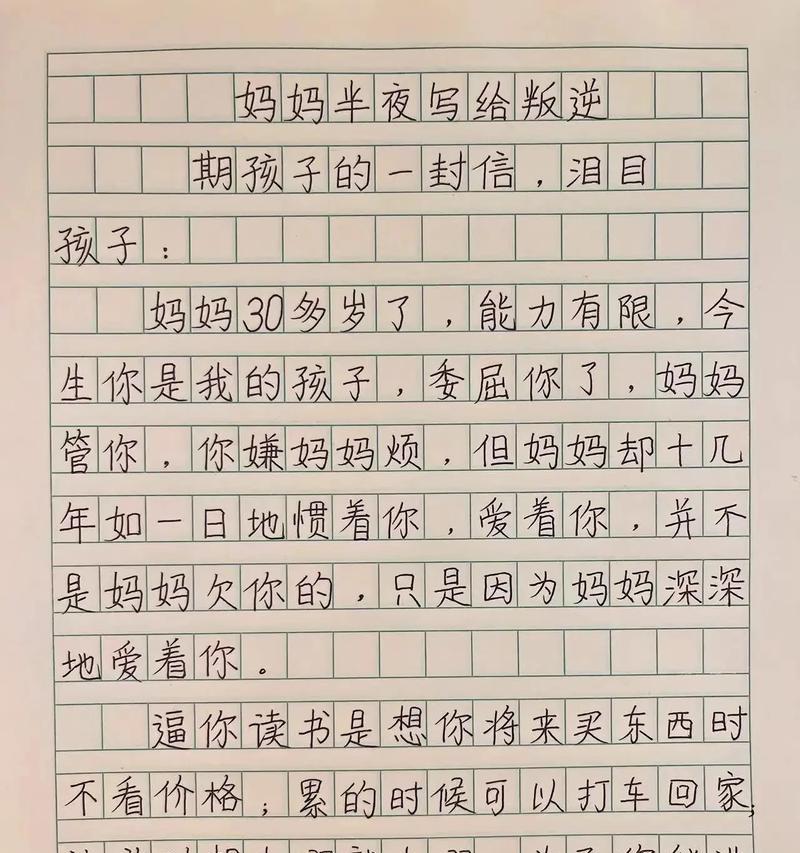 妈妈半夜写给叛逆
期孩子的一封信，泪目
孩子：
妈妈30多岁了，能力有限，今
生你是我的孩子，委屈你了，妈妈
管你，你嫌妈妈烦，但妈妈却十几
年如一日地惯着你，爱着你，并不
是妈妈欠你的，只是因为妈妈深深
地爱着你。
逼你读书是想你将来买东西时
不看价格；累的时候可以打车回家；